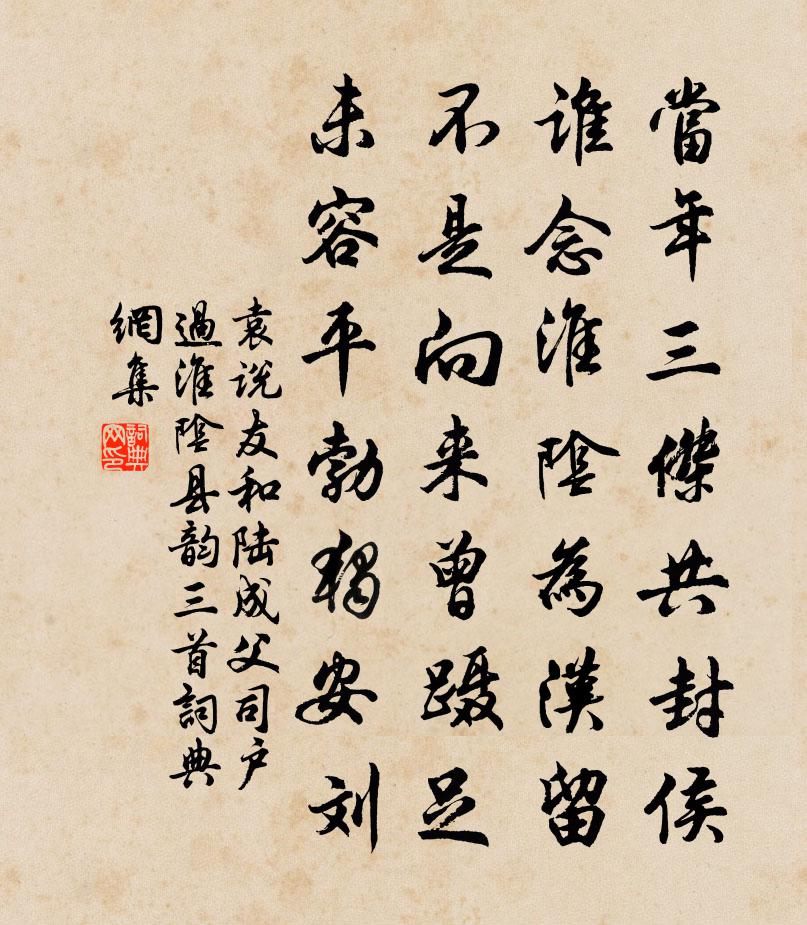 當年三傑共封侯
誰念淮陰為漢留
不是向来曾蹑足
未容平勃獨安刘
袁说友和陆成父司户
過淮陰县韵三首詞典
網集
詞典
网印